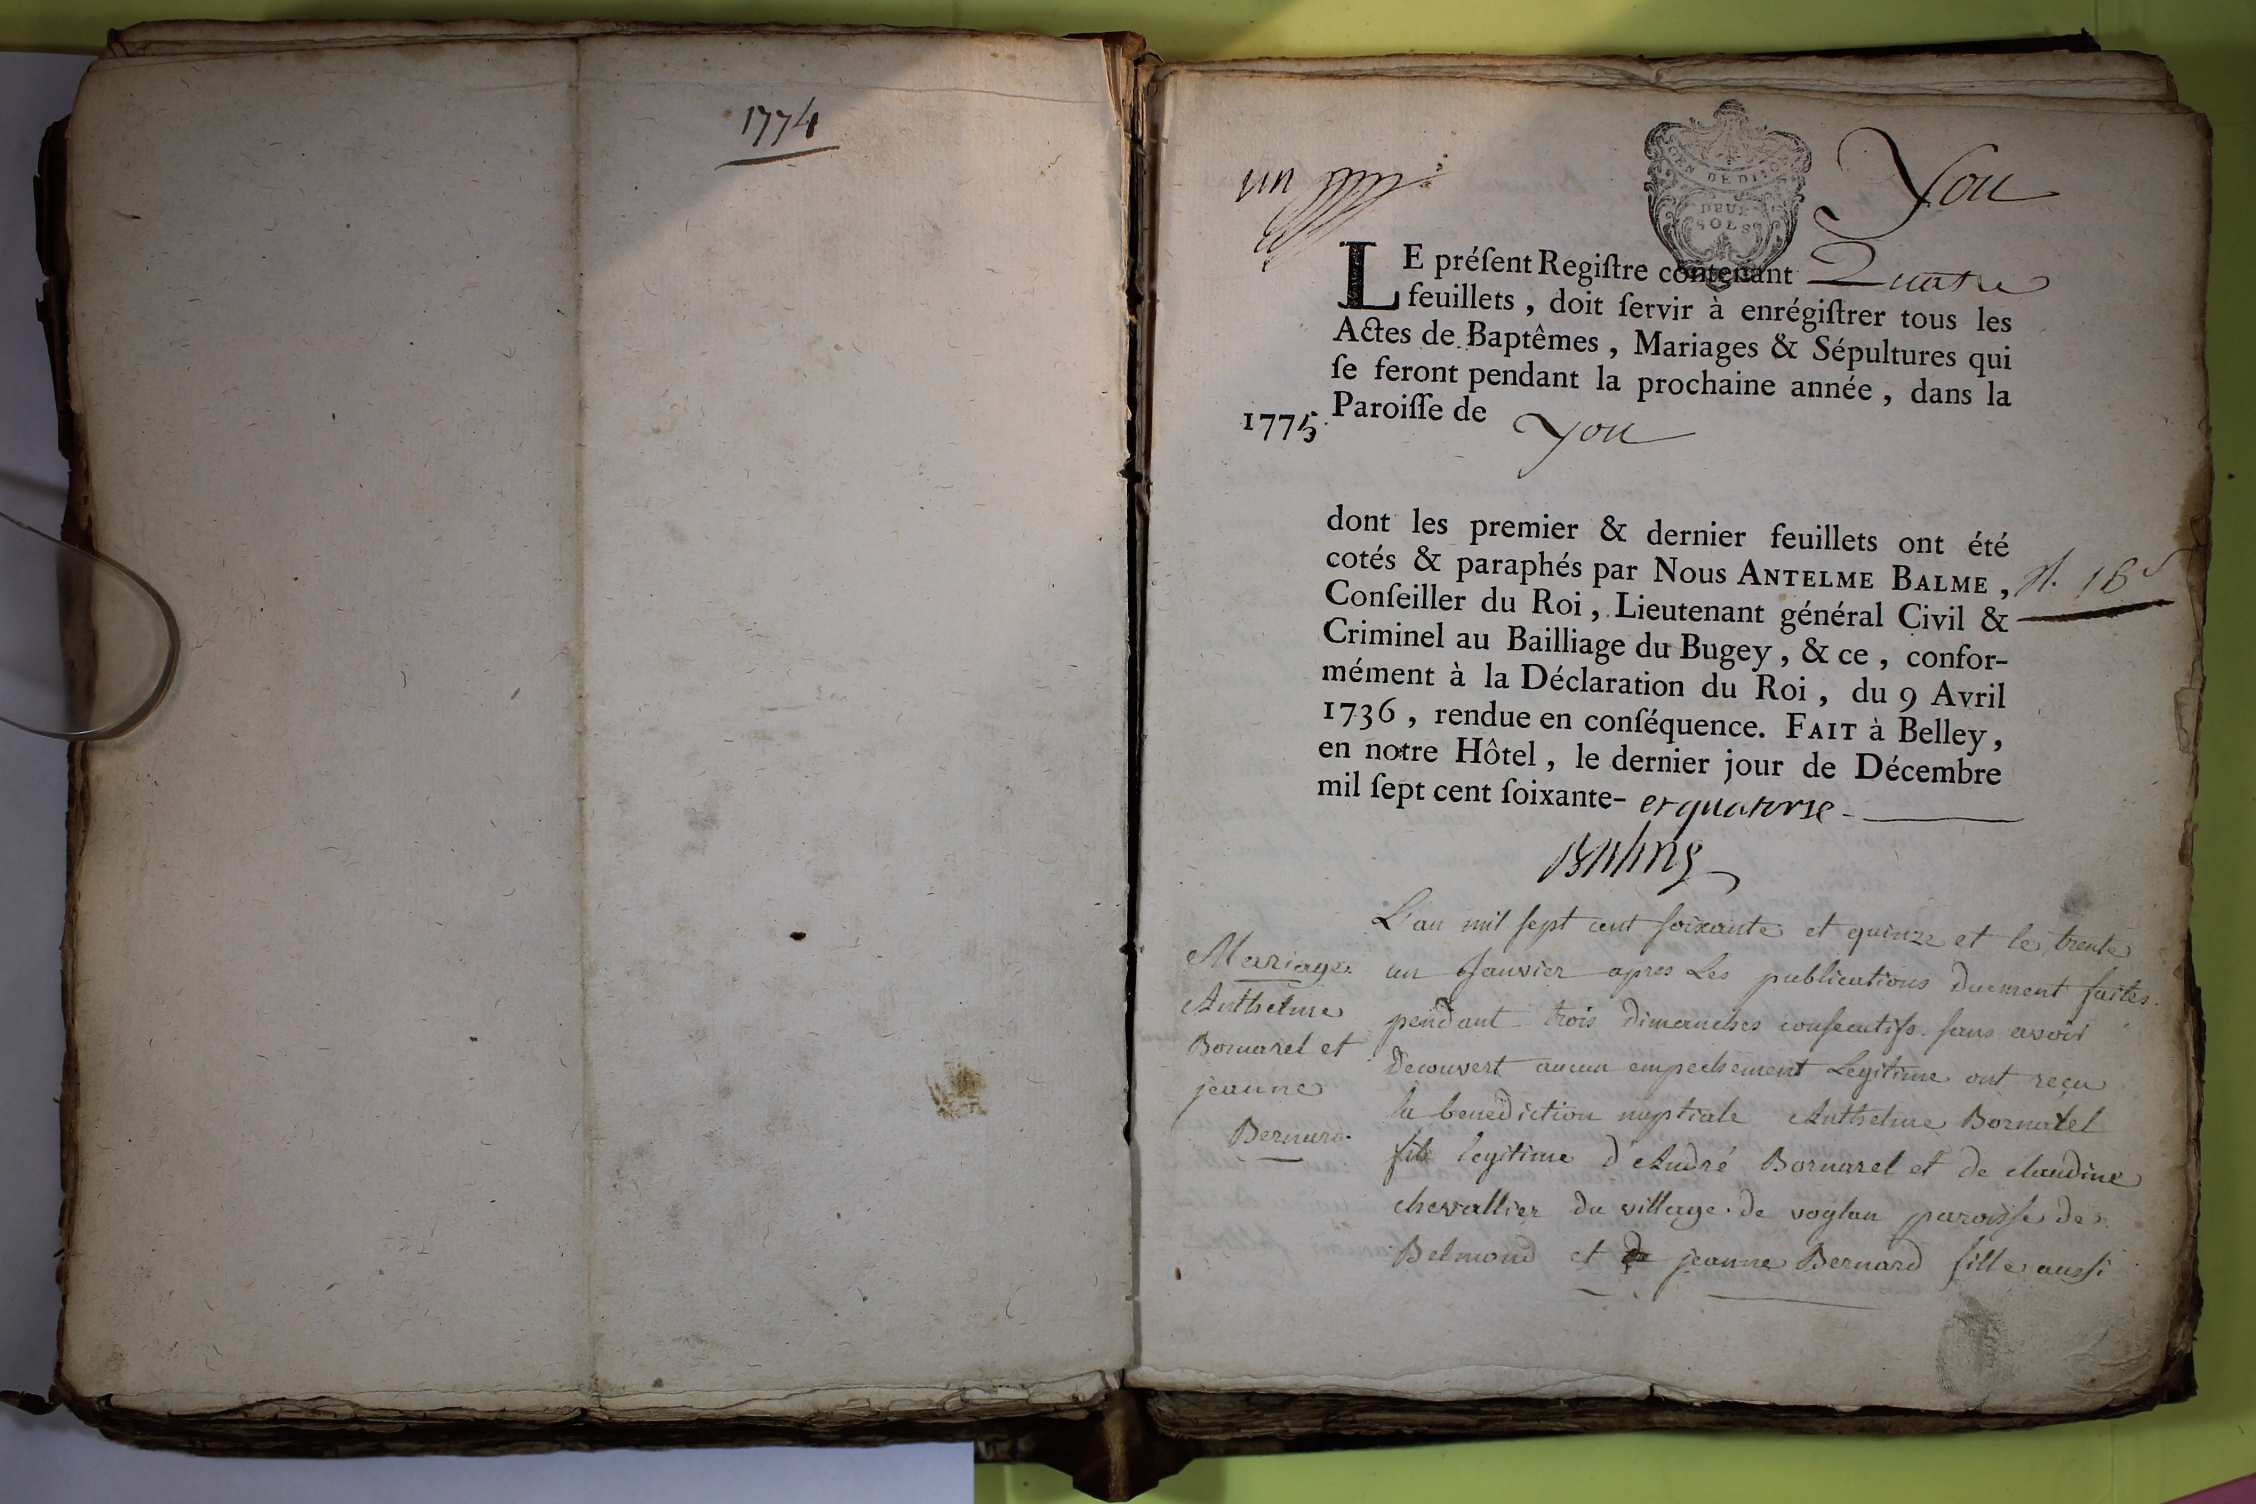 1774
un
GEN DE DIJON
DEUX
SOLS
You
LE préſent Regiſtre contenant Quatre
feuillets, doit ſervir à enrégiſtrer tous les
Actes de Baptêmes, Mariages & Sépultures qui
ſe feront pendant la prochaine année, dans la
1775. Paroiſſe de You
dont les premier & dernier feuillets ont été
cotés & paraphés par Nous ANTELME BALME,
Conſeiller du Roi, Lieutenant général Civil &
Criminel au Bailliage du Bugey, & ce, confor-
mément à la Déclaration du Roi, du 9 Avril
1736, rendue en conſéquence. FAIT à Belley,
en notre Hôtel, le dernier jour de Décembre
mil ſept cent ſoixante- et quatorse
Balme
Mariage
Anthelme
Bornarel et
jeanne
Bernard.
L'an mil sept cent soixante et quinze et le trente
un Janvier apres Les publications duement faites
pendant trois dimanches consecutifs sans avoir
decouvert aucun empechement Legitime ont reçu
la benediction nuptiale Anthelme Bornarel
fils legitime d'André Bornarel et de claudine
chevallier du village de voglan paroisse de
Belmond et jeanne Bernard fille aussi